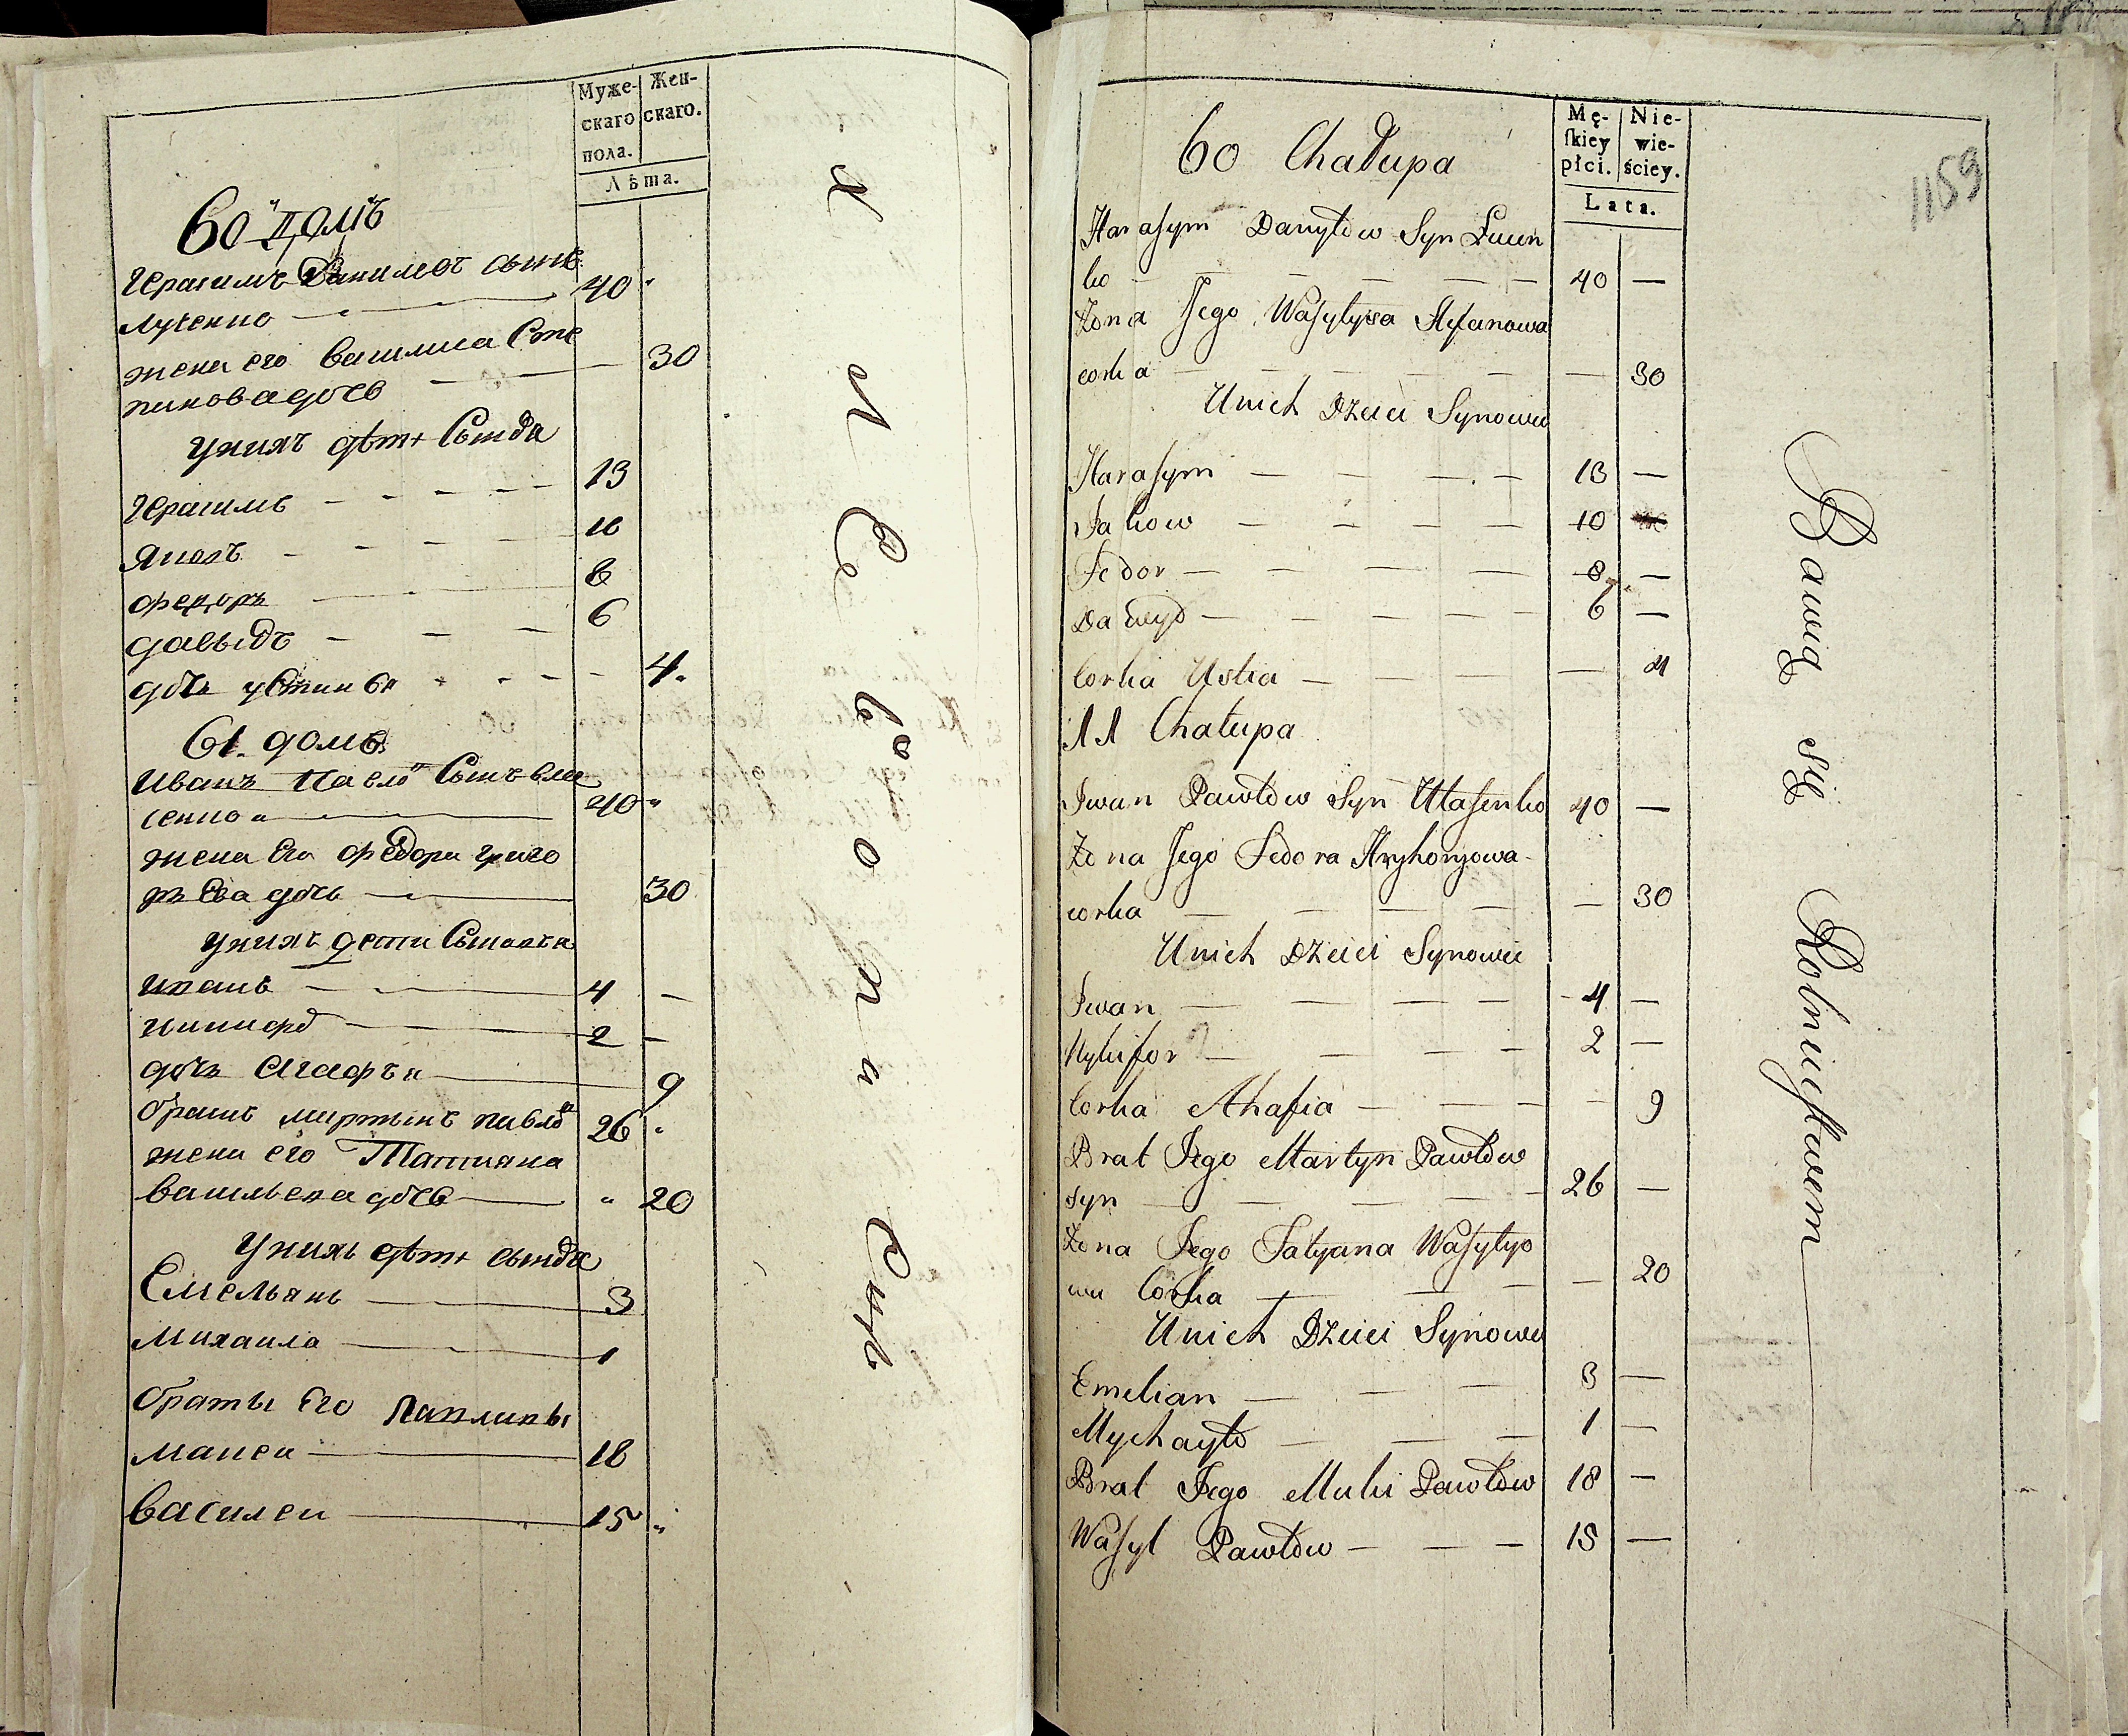 Муже-
скаго
пола.
Жен-
скаго.
Лѣта.
60 домъ
Герасимъ Даниловъ сынъ
Луценко 40
жена его Василиса Сте
панова дочь 30
У нихъ дѣти Сыновя
Герасимъ 13
Яковъ 10
Федоръ 8
Давыдъ 6
дочь Устинья 4
61. домъ
Иванъ Павловъ Сынъ Вла
сенко 40
жена Его Федора Григо
рьева дочь 30
У нихъ дети Сыновья
Иванъ 4 —
Никифоръ 2 —
дочь Агафья 9
братъ мартынъ павловъ 26
жена его Татияна
васильева дочь 20
У нихъ дѣти сыновя
Емельянъ 3
Михаила 1
браты Его Павловы
мокей 18
василей 15
Хлебопаши
1159
Mę-
skiey
płci.
Nie-
wie-
ściey.
Lata.
60 Chałupa
Harasym Danyłow Syn Łucen
ko 40 —
Żona Jego Wasylysa Stefanowa
corka — 30
U nich Dzieci Synowie
Harasym 13 —
Jakow 10
Fedor 8 —
Dawyd 6 —
Corka Ustia — 4
61 Chałupa
Iwan Pawłow Syn Ułasenko 40 —
Żona Jego Fedora Hryhoryowa
corka — 30
U nich Dzieci Synowie
Iwan 4 —
Nykifor 2 —
Corka Ahafia — 9
Brat Jego Martyn Pawłow
syn 26 —
Żona Jego Tatyana Wasylyo
wa Corka — 20
U nich Dzieci Synowie
Emelian 3 —
Mychayło 1 —
Brat Jego Muki Pawłow 18 —
Wasyl Pawłow 15 —
Bawią się Rolnictwem